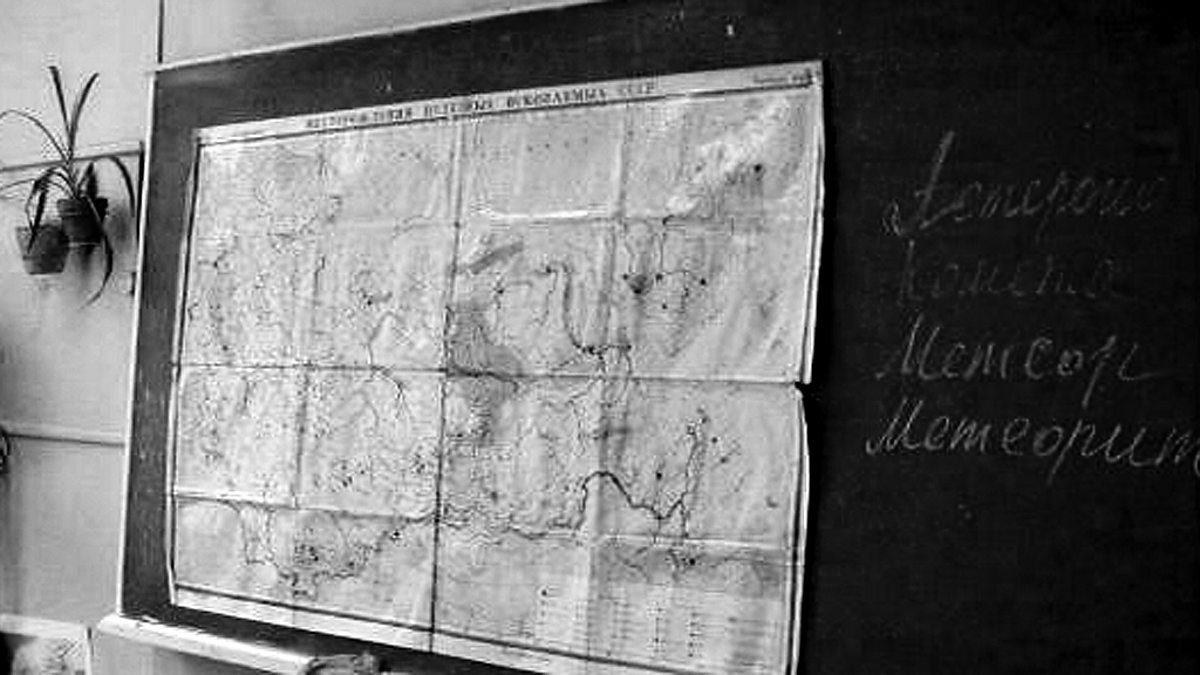 МЕСТОРОЖДЕНИЯ ПОЛЕЗНЫХ ИСКОПАЕМЫХ СССР
Астероид
Комета
Метеор
Метеорит